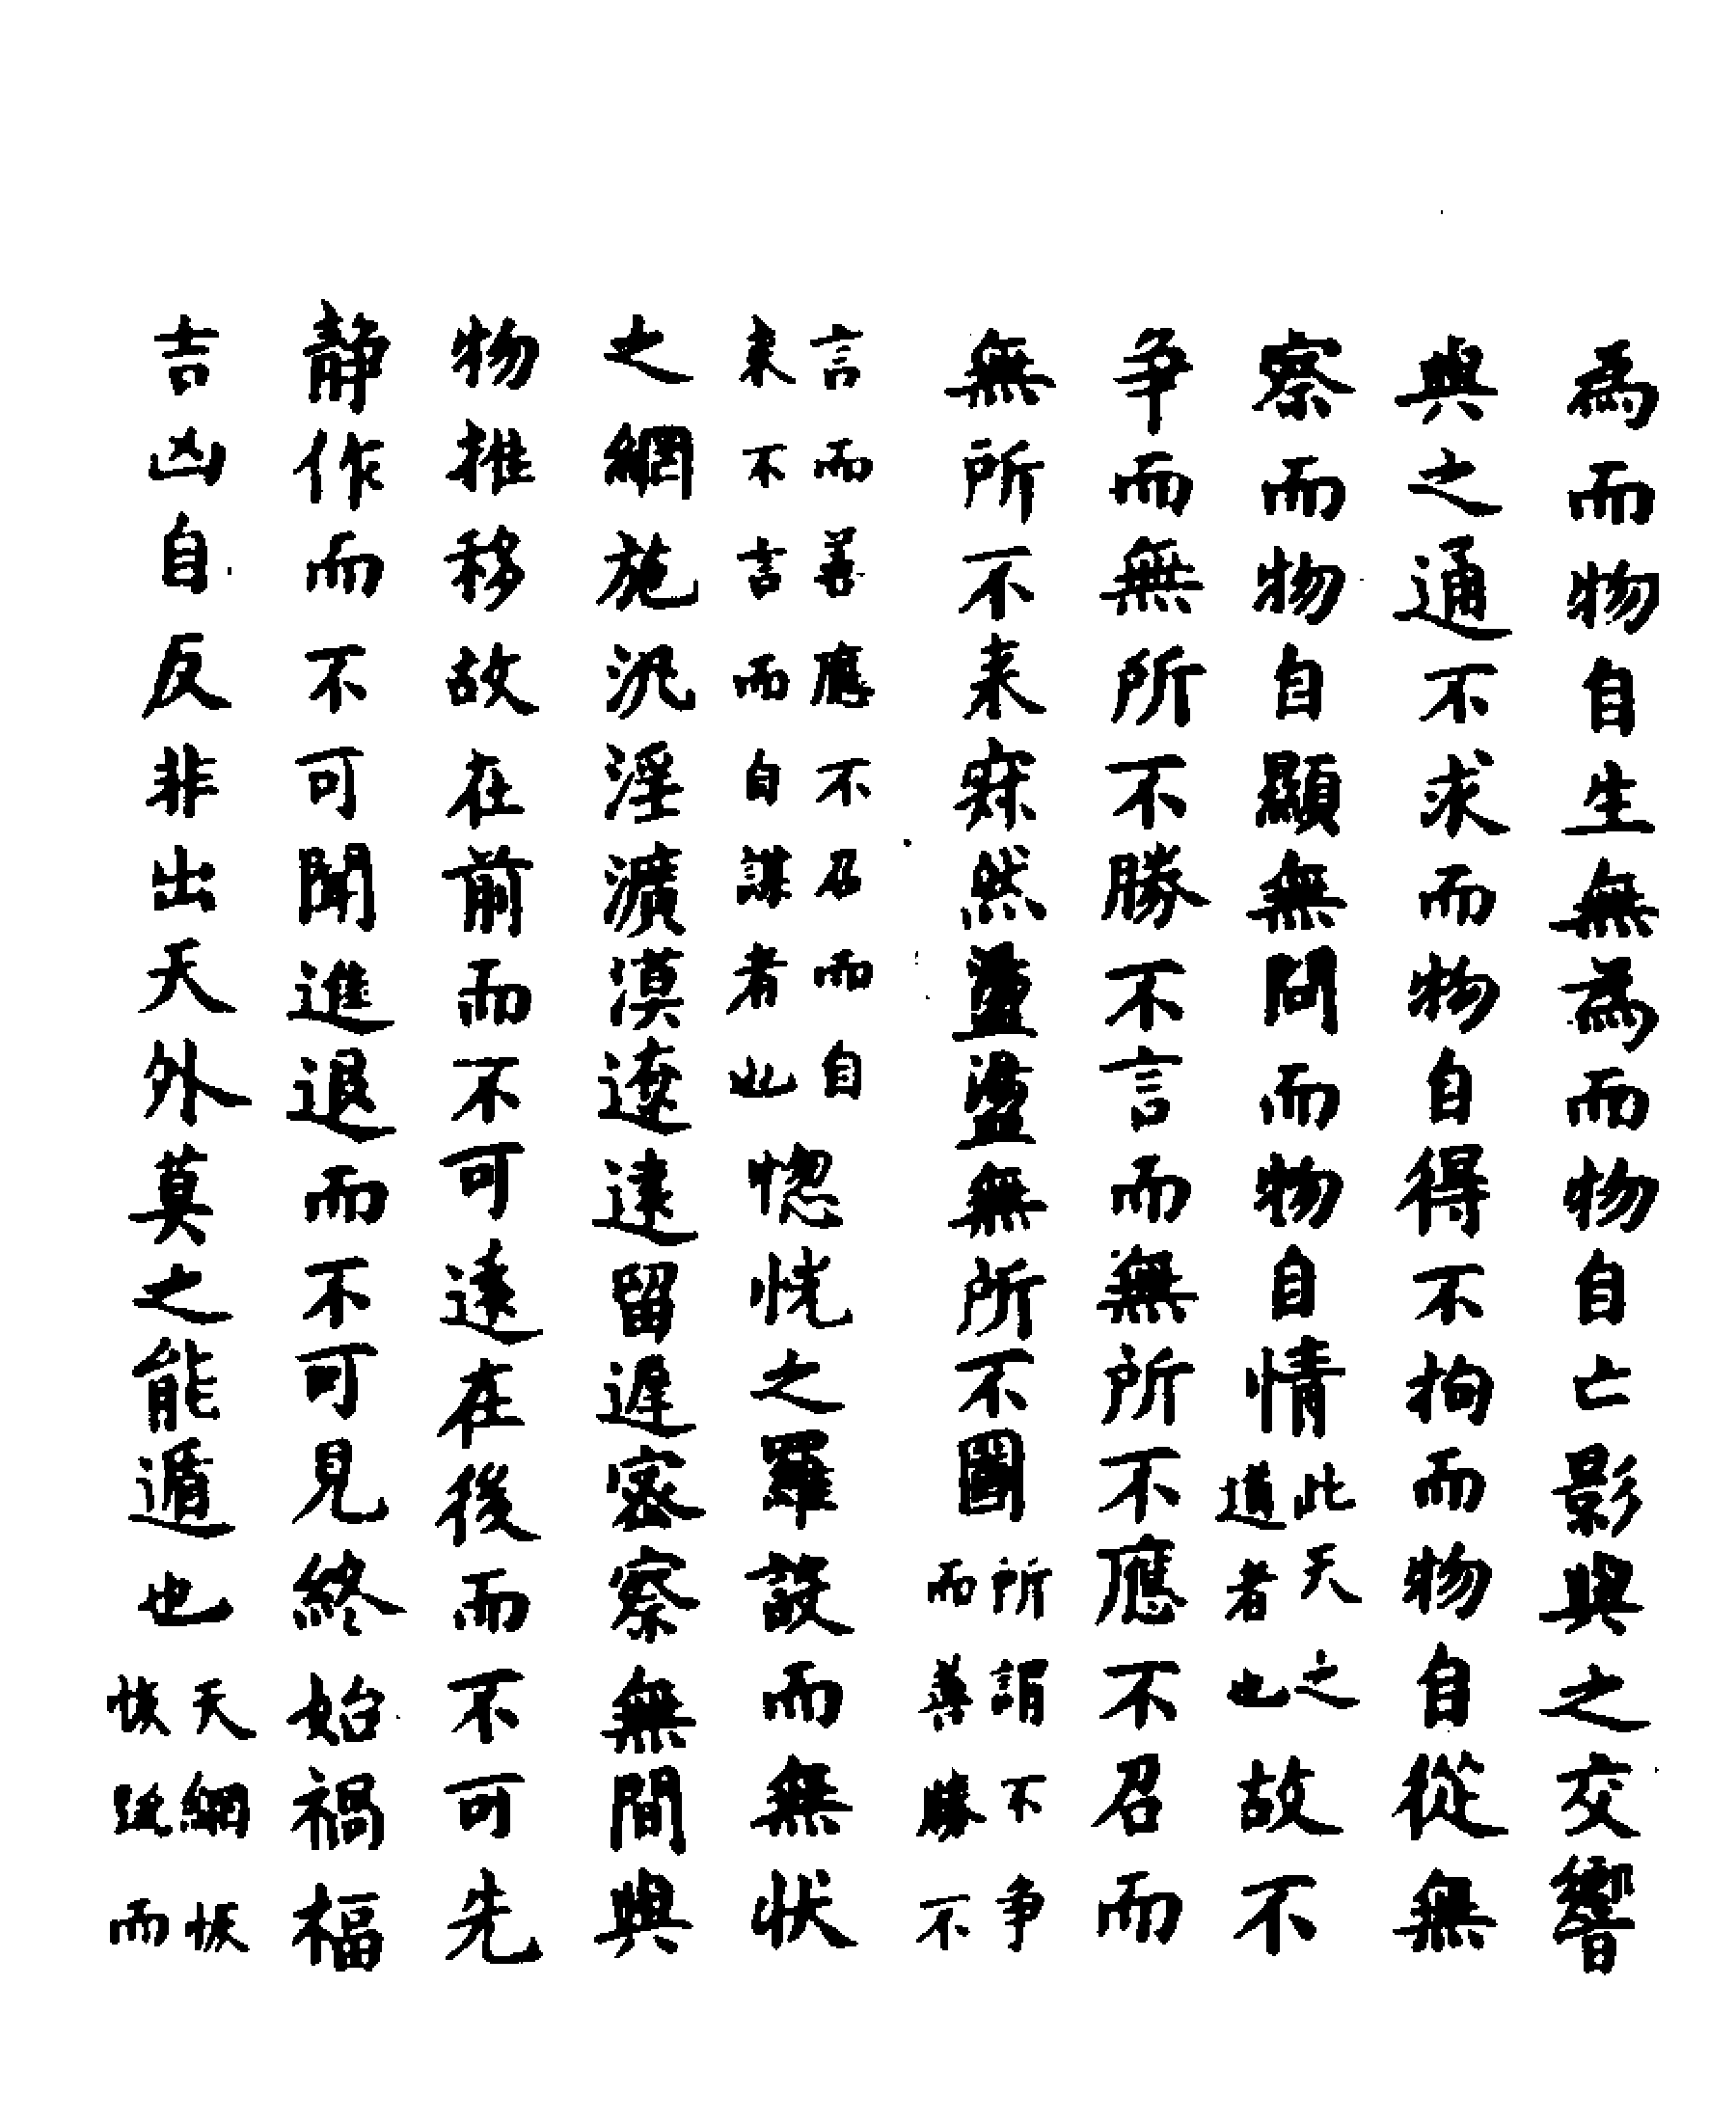 為而物自生無為而物自亡影與之交響
與之通不求而物自得不拘而物自從無
察而物自顯無問而物自情此天之道者也故不
争而無所不勝不言而無所不應不召而
無所不来寂然盪盪無所不圖所謂不争而善勝不
言而善應不召而自来不言而自謀者也惚恍之羅設而無状
之網施汎淫瀇漠遼遠留遲密察無間與
物推移故在前而不可遠在後而不可先
静作而不可聞進退而不可見終始禍福
吉凶自反非出天外莫之能遁也天網恢恢踈而